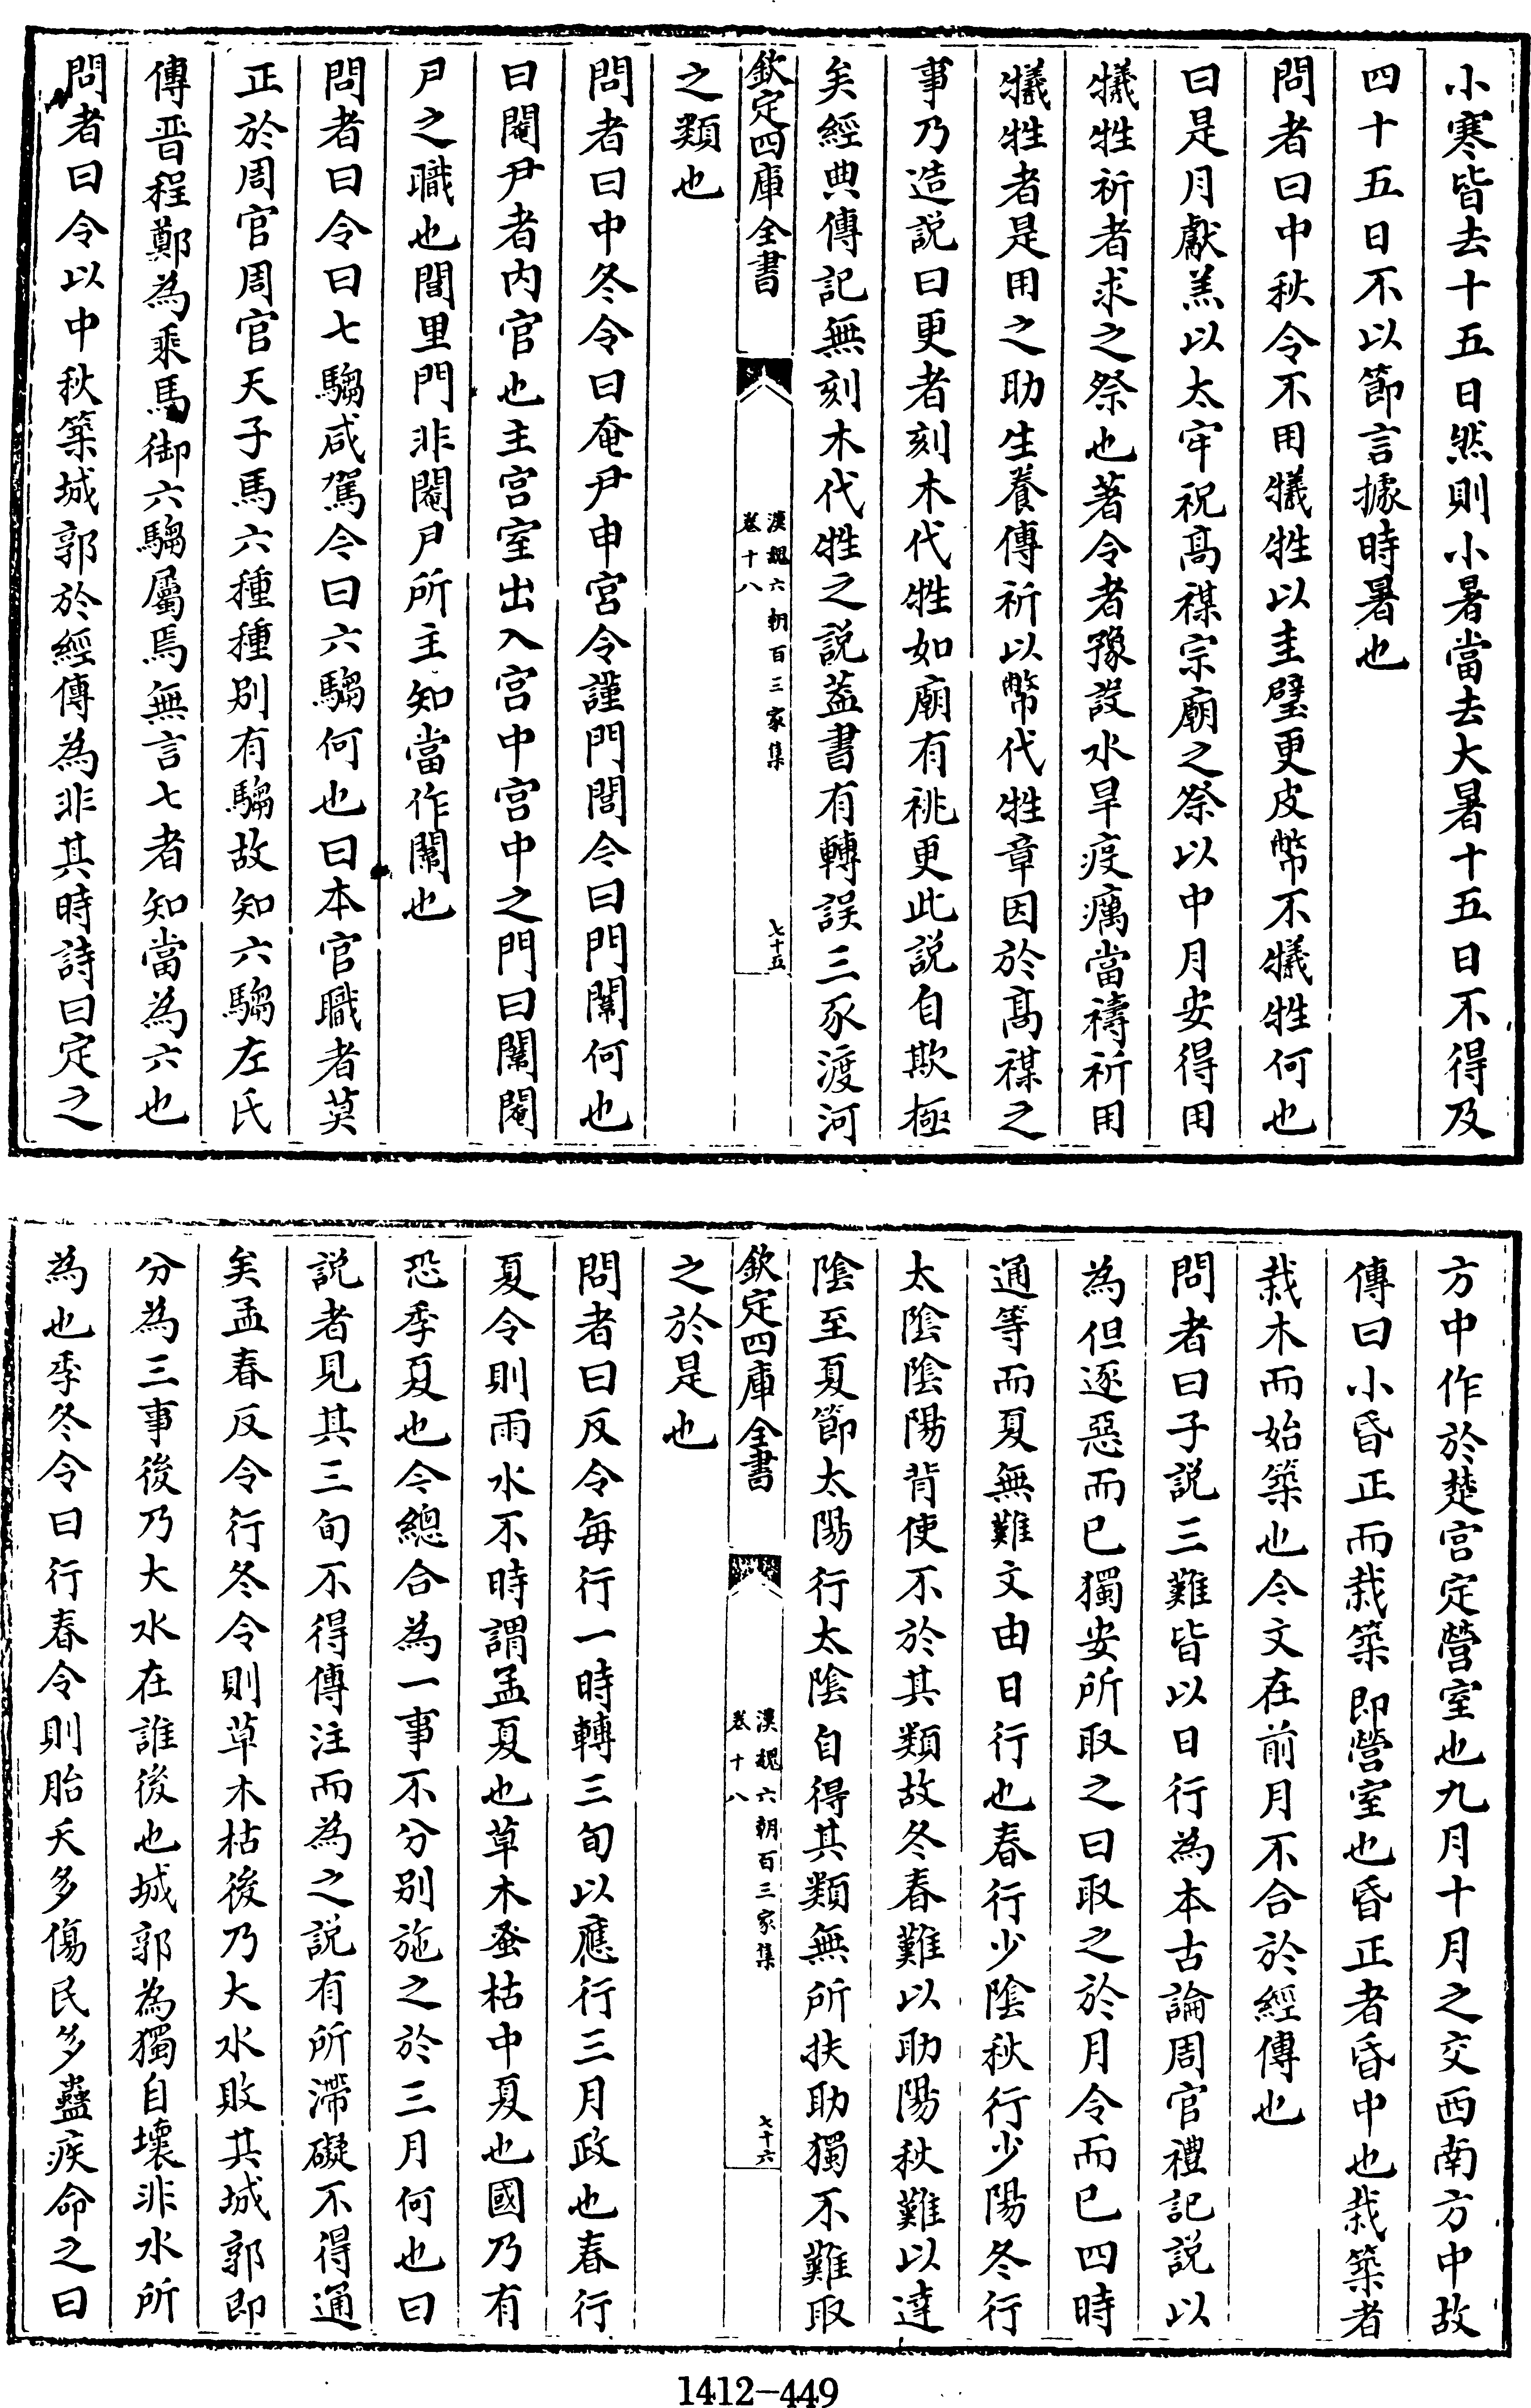 小寒皆去十五日然則小暑當去大暑十五日不得及
四十五日不以節言據時暑也
問者曰中秋令不用犧牲以圭璧更皮幣不犧牲何也
曰是月獻羔以太牢祀高禖宗廟之祭以中月安得用
犧牲祈者求之祭也著令者豫設水旱疫癘當禱祈用
犧牲者是用之助生養傳祈以幣代牲章因於高禖之
事乃造說曰更者刻木代牲如廟有祧更此說自欺極
矣經典傳記無刻木代牲之說蓋書有轉誤三豕渡河
欽定四庫全書
漢魏六朝百三家集
卷十八
七十五
之類也
問者曰中冬令曰奄尹申宮令謹門閭今曰門闈何也
曰閹尹者内官也主宮室出入宮中宮中之門曰闈閹
尹之職也閭里門非閹尹所主知當作闈也
問者曰令曰七騶咸駕今曰六騶何也曰本官職者莫
正於周官周官天子馬六種種别有騶故知六騶左氏
傳晉程鄭為乘馬御六騶屬焉無言七者知當為六也
問者曰令以中秋築城郭於經傳為非其時詩曰定之
方中作於楚宮定營室也九月十月之交西南方中故
傳曰小昏正而栽築即營室也昏正者昏中也栽築者
栽木而始築也今文在前月不合於經傳也
問者曰子說三難皆以日行為本古論周官禮記說以
為但逐惡而已獨安所取之曰取之於月令而已四時
通等而夏無難文由日行也春行少陰秋行少陽冬行
太陰陰陽背使不於其類故冬春難以助陽秋難以達
陰至夏節太陽行太陰自得其類無所扶助獨不難取
欽定四庫全書
漢魏六朝百三家集
卷十八
七十六
之於是也
問者曰反令每行一時轉三旬以應行三月政也春行
夏令則雨水不時謂孟夏也草木蚤枯中夏也國乃有
恐季夏也今總合為一事不分别施之於三月何也曰
說者見其三旬不得傳注而為之說有所滯礙不得通
矣孟春反令行冬令則草木枯後乃大水敗其城郭即
分為三事後乃大水在誰後也城郭為獨自壞非水所
為也季冬令曰行春令則胎夭多傷民多蠱疾命之曰
1412-449